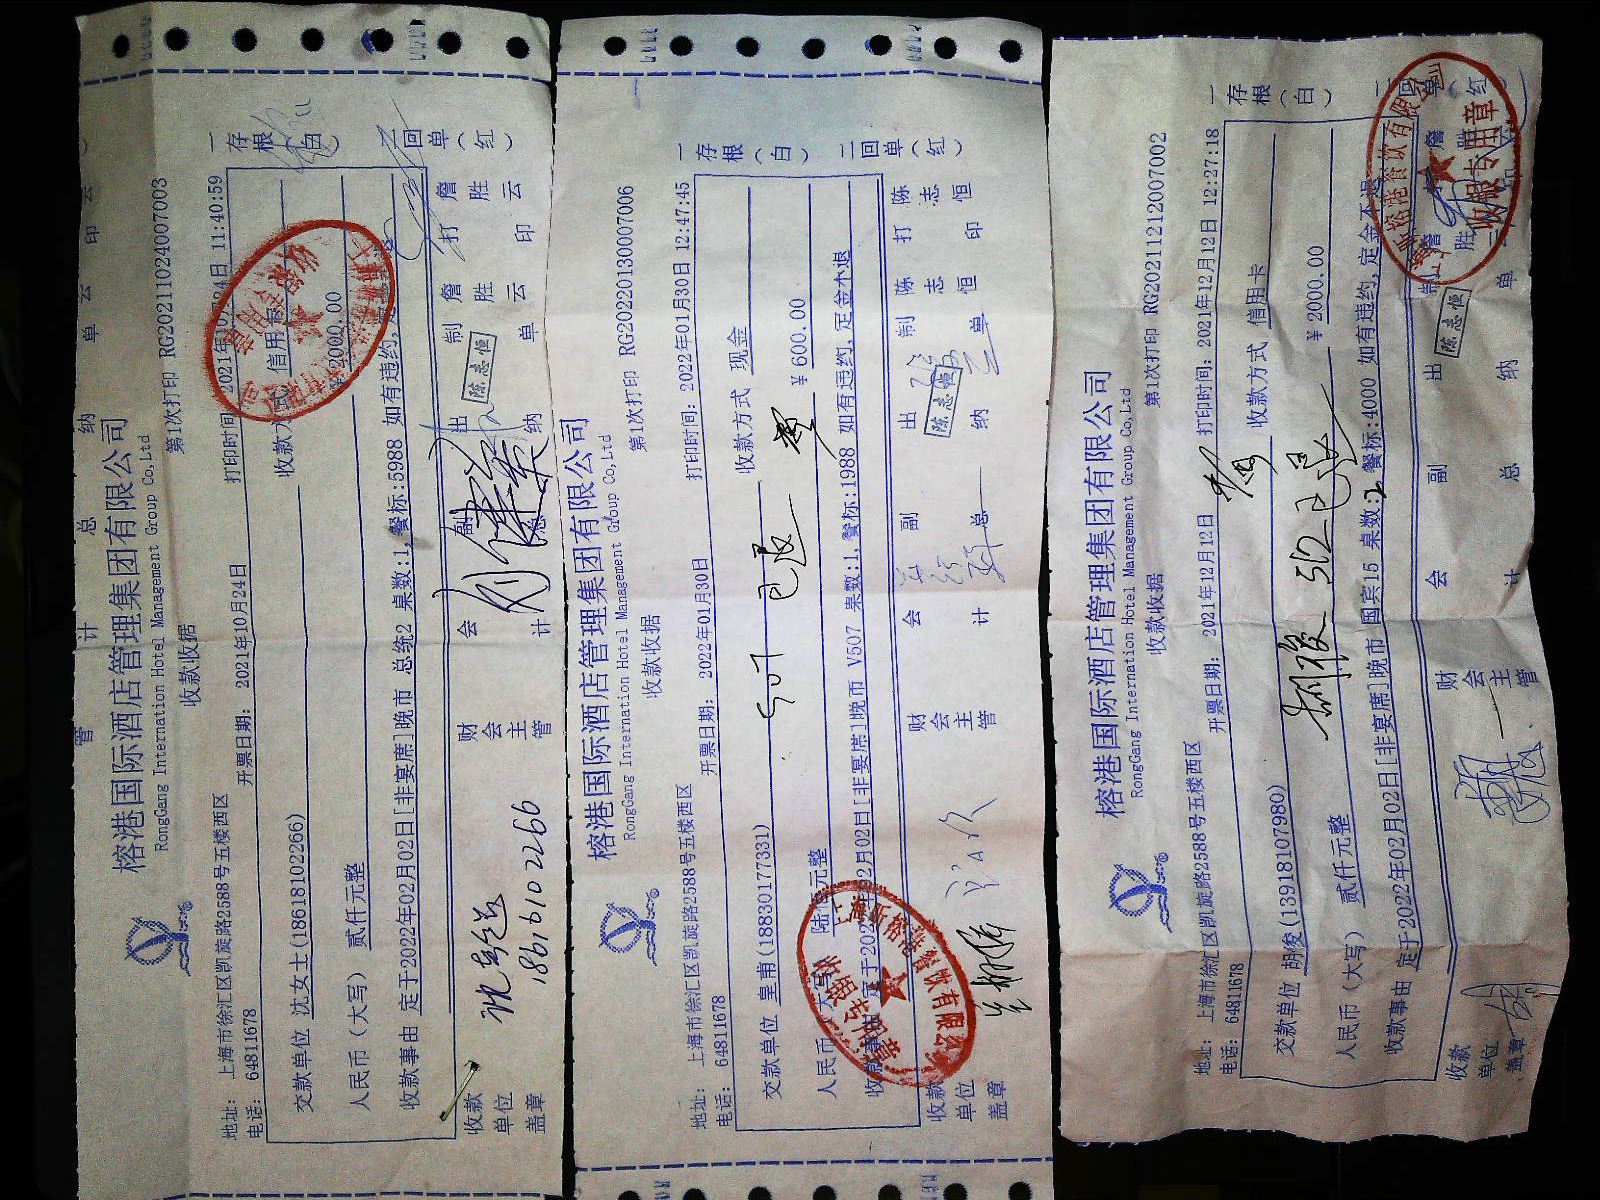 榕港国际酒店管理集团有限公司
RongGang International Hotel Management Group Co,Ltd
收款收据
第1次打印 RG20211024007003
地址: 上海市徐汇区凯旋路2588号五楼西区
电话: 64811678
开票日期: 2021年10月24日
打印时间:2021年10月24日 11:40:59
交款单位 沈女士(18618102266)
收款方式 信用卡
人民币(大写) 贰仟元整
¥2000.00
收款事由 定于2022年02月02日[非宴席]晚市 总统2 桌数:1,餐标:5988 如有违约,
收款单位盖章
财会主管
会计
副总
出纳
陈志恒
制单 詹胜云
打印 詹胜云
一存根(白)
二回单(红)
18616102266
榕港国际酒店管理集团有限公司
RongGang International Hotel Management Group Co,Ltd
收款收据
第1次打印 RG20220130007006
地址: 上海市徐汇区凯旋路2588号五楼西区
电话: 64811678
开票日期: 2022年01月30日
打印时间:2022年01月30日 12:47:45
交款单位 皇甫(18830177331)
收款方式 现金
507 已退
人民币(大写) 陆佰元整
¥600.00
收款事由 定于2022年02月02日[非宴席]晚市 V507 桌数:1,餐标:1988 如有违约,定金不退
收款单位盖章
财会主管
会计
副总
出纳
陈志恒
制单 陈志恒
打印 陈志恒
一存根(白)
二回单(红)
榕港国际酒店管理集团有限公司
RongGang International Hotel Management Group Co,Ltd
收款收据
第1次打印 RG20211212007002
地址: 上海市徐汇区凯旋路2588号五楼西区
电话: 64811678
开票日期: 2021年12月12日
打印时间:2021年12月12日 12:27:18
交款单位 胡俊(13918107980)
收款方式 信用卡
胡俊 512 已退
人民币(大写) 贰仟元整
¥2000.00
收款事由 定于2022年02月02日[非宴席]晚市 国宾15 桌数:2,餐标:4000 如有违约,定金不退
收款单位盖章
财会主管
会计
副总
出纳
陈志恒
制单 詹胜
一存根(白)
二回单(红)